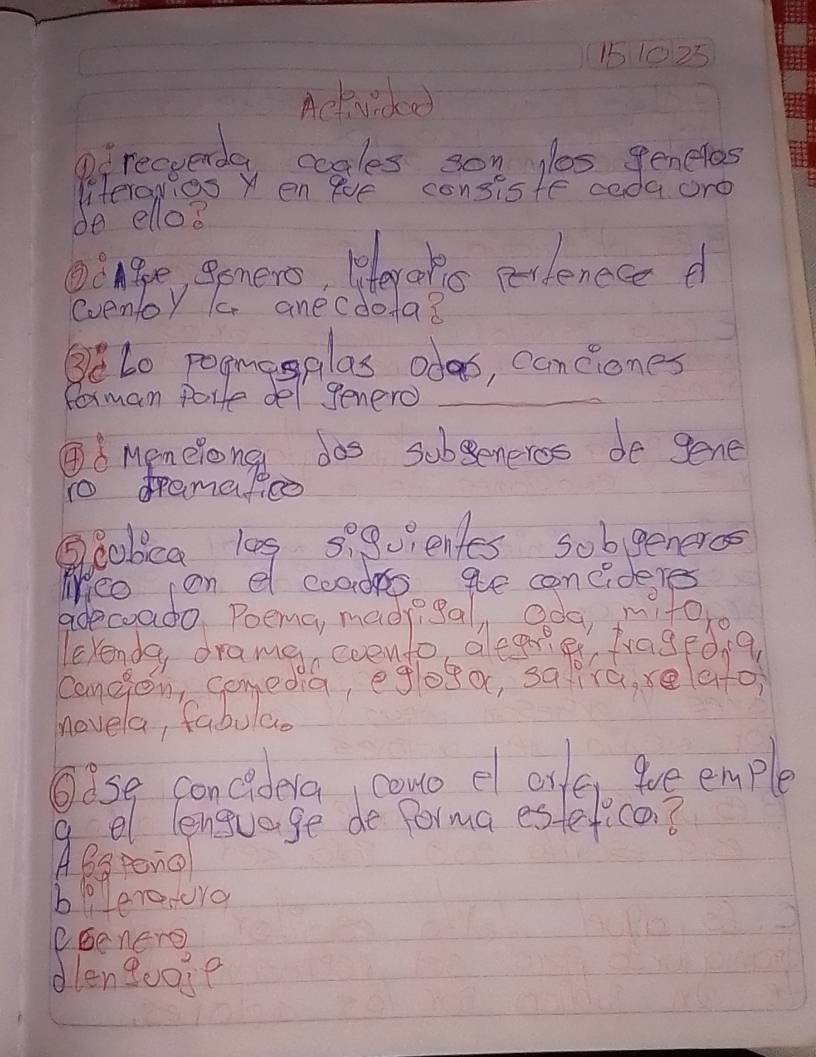 15 10 25
Actividad
① ¿recuerda cuales son los generos
literarios y en que consiste cada uno
de ello?
② ¿A que genero, literario pertenece el
cuento y la anecdota?
③ ¿Lo poemas, las odas, canciones
forman parte del genero ________
④ ¿Menciona dos subgeneros de gene
ro dramatico
⑤ ¿ubica los siguientes subgeneros
lirico en el cuadros que concideres
adecuado Poema, madrigal, Oda, mito,
leyenda, drama, cuento, alegria, tragedia,
canción, comedia, egloga, satira, relato,
novela, fabula.
⑥ ¿se concidera como el arte, que emple
a el lenguage de forma estetico.?
A Español
b literatura
c Genero
d lenguaje